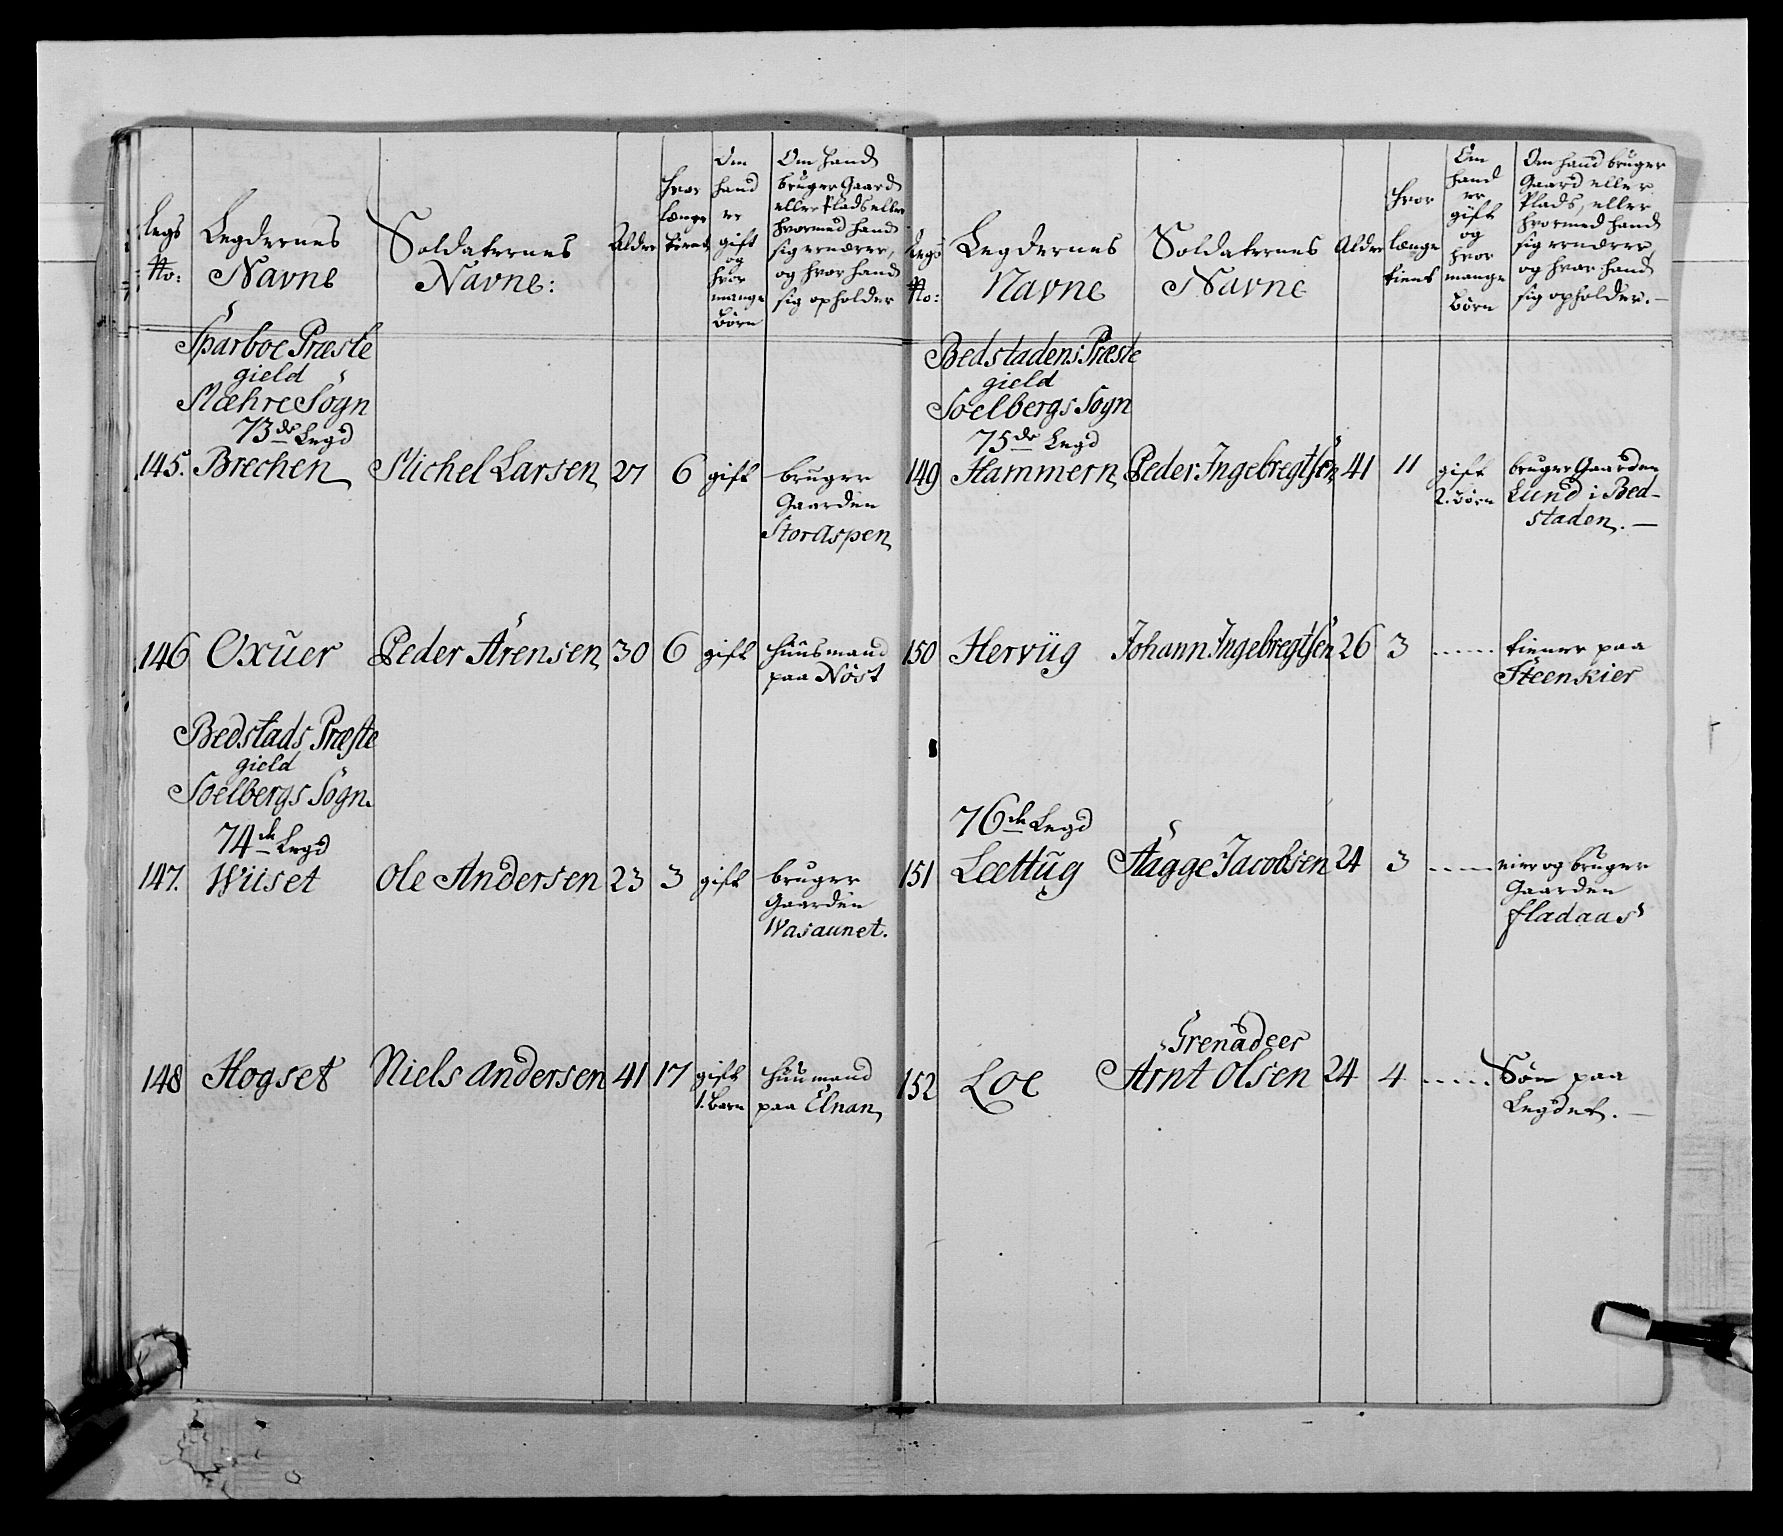 Legs
No:
Legdernes
Navne
Soldaternes
Navne:
Alder
hvor
længe
tient
Om
hand
er
gift
og
hvor
mange
Børn
Om hand
bruger Gaard
eller Plads eller
hvormed hand
sig ernærer,
og hvor hand
sig opholder
Sparboe Præste
gield
Mæhre Sogn
73de Legd
145. Brechen Michel Larsen 27 6 gift bruger
Gaarden
StorAspen
146 Oxuer Peder Arensen 30 6 gift Huusmand
paa Nøst
Bedstads Præste
gield
Soelbergs Sogn.
74de Legd
147. Wiiset Ole Andersen 23 3 gift bruger
Gaarden
Wasaunet.
148 Hogset Niels Andersen 41 17 gift Huumand
1. Barn paa Elnan
Legs
No:
Legdernes
Navne
Soldaternes
Navne
Alder
hvor
længe
tient
Om
hand
er
gift
og
hvor
mange
Børn
Om hand bruger
Gaard eller
Plads, eller
hvormed hand
sig ernærer,
og hvor hand
sig opholder.—
Bedstadens Præste
gield
Soelbergs Sogn
75de Legd
149 Hammern Peder Ingebregtsen 41 11 gift bruger Gaarden
2. Børn Lund i Bed-
staden.—
150 Herviig Johann Ingebregtsen 26 3 ...... tiener paa
Steenkier
76de Legd
151 Leettug Aagge Jacobsen 24 3 ...... eier og bruger
Gaarden
fladaas
Grenadeer
152 Loe Arnt Olsen 24 4 ...... Søn paa
Legdet.—